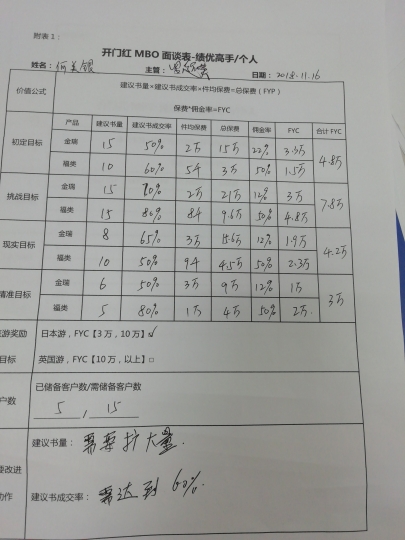 附表1：
开门红 MBO 面谈表-绩优高手/个人
姓名：何美银 主管： 日期：2018.11.16
价值公式 建议书量×建议书成交率×件均保费=总保费（FYP）
保费*佣金率=FYC
产品 建议书量 建议书成交率 件均保费 总保费 佣金率 FYC 合计 FYC
初定目标 金瑞 15 50% 2万 15万 22% 3.3万 4.8万
福类 10 60% 5千 3万 50% 1.5万
挑战目标 金瑞 15 70% 2万 21万 12% 3万 7.8万
福类 15 80% 8千 9.6万 50% 4.8万
现实目标 金瑞 8 65% 3万 15.6万 12% 1.9万 4.2万
福类 10 50% 9千 4.5万 50% 2.3万
准目标 金瑞 6 50% 3万 9万 12% 1万 3万
福类 5 80% 1万 4万 50% 2万
游奖励 日本游，FYC【3万，10万】√
目标 英国游，FYC【10万，以上】□
户数 已储备客户数/需储备客户数
5 / 15
建议书量：需要扩大量.
改进
动作 建议书成交率：需达到60%.